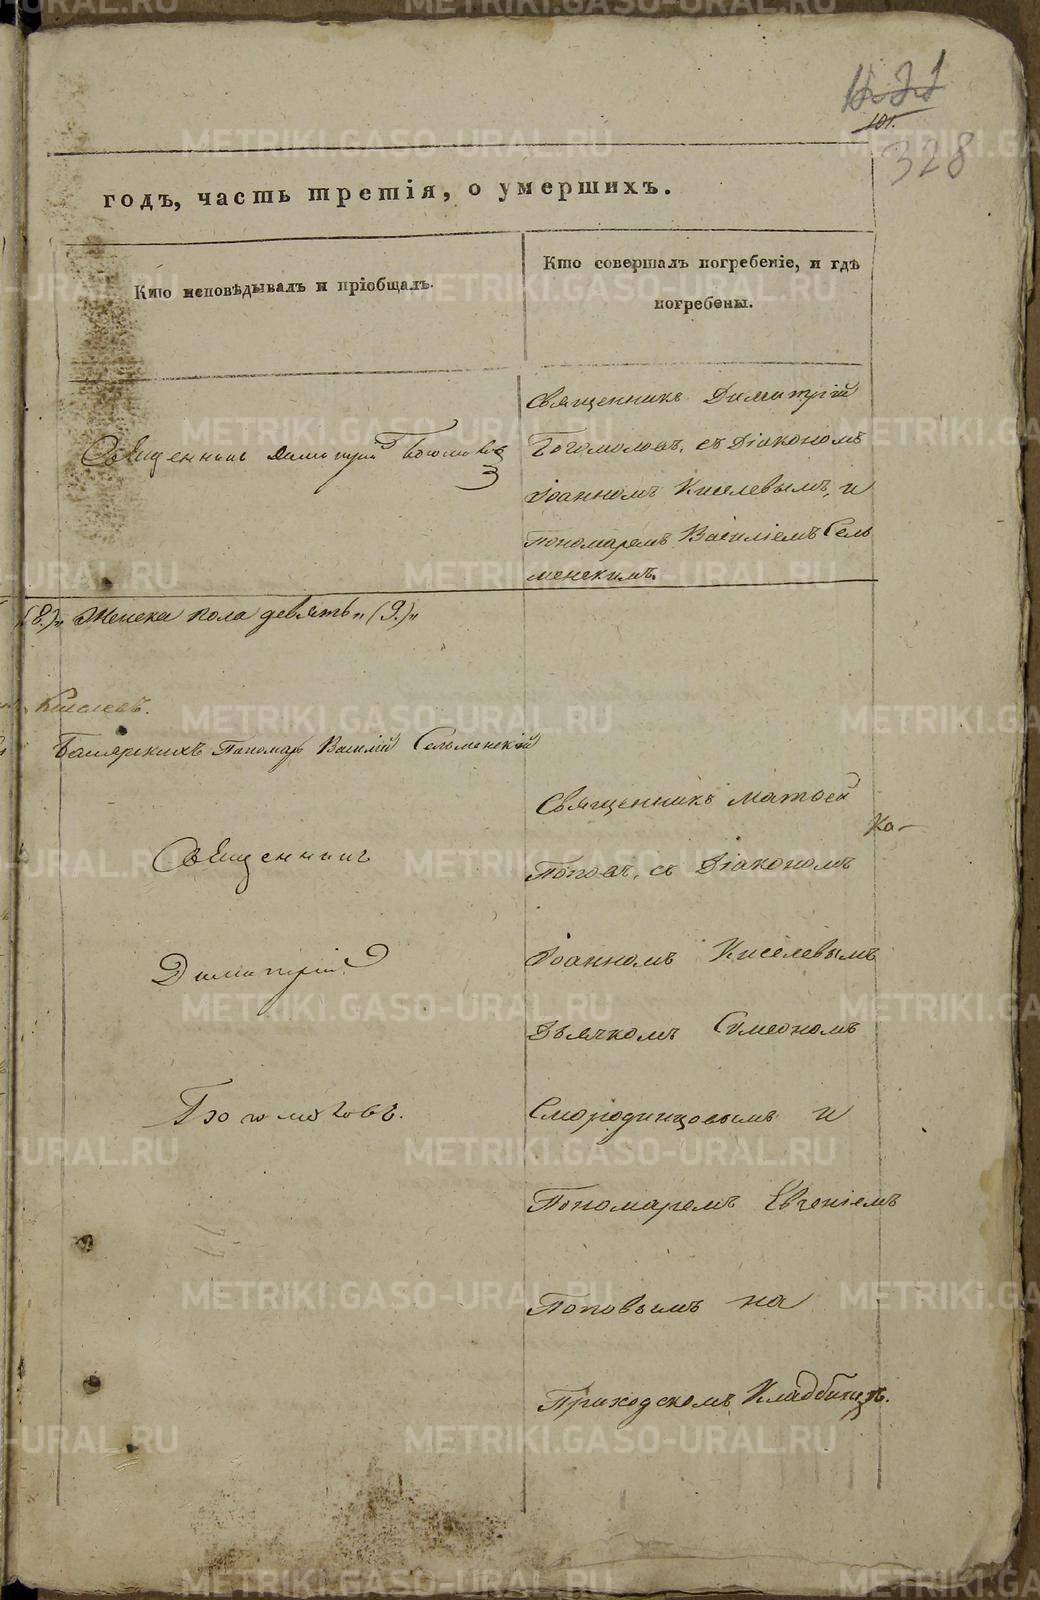 101.
328
годъ, часть третія, о умершихъ.
Кто исповѣдывалъ и пріобщалъ.
Кто совершалъ погребеніе, и гдѣ
погребены.
Священникъ Димитрій
Священникъ Димитрій Богомоловъ
Богомоловъ, съ Діакономъ
Іоанномъ Киселевымъ, и
Пономаремъ Василіемъ Сель
менскимъ.
(8.)„ Женска пола девять „(9.)„
Киселевъ.
Пономарь Василій Сельменскій
Священникъ Матѳей
Ка-
Священникъ
Поповъ, съ Діакономъ
Іоанномъ Киселевымъ
Димитрій
Дьячкомъ Симеономъ
Богомоловъ.
Смородинцовымъ и
Пономаремъ Евгеніемъ
Поповымъ на
Приходскомъ Кладбищѣ.
METRIKI.GASO-URAL.RU